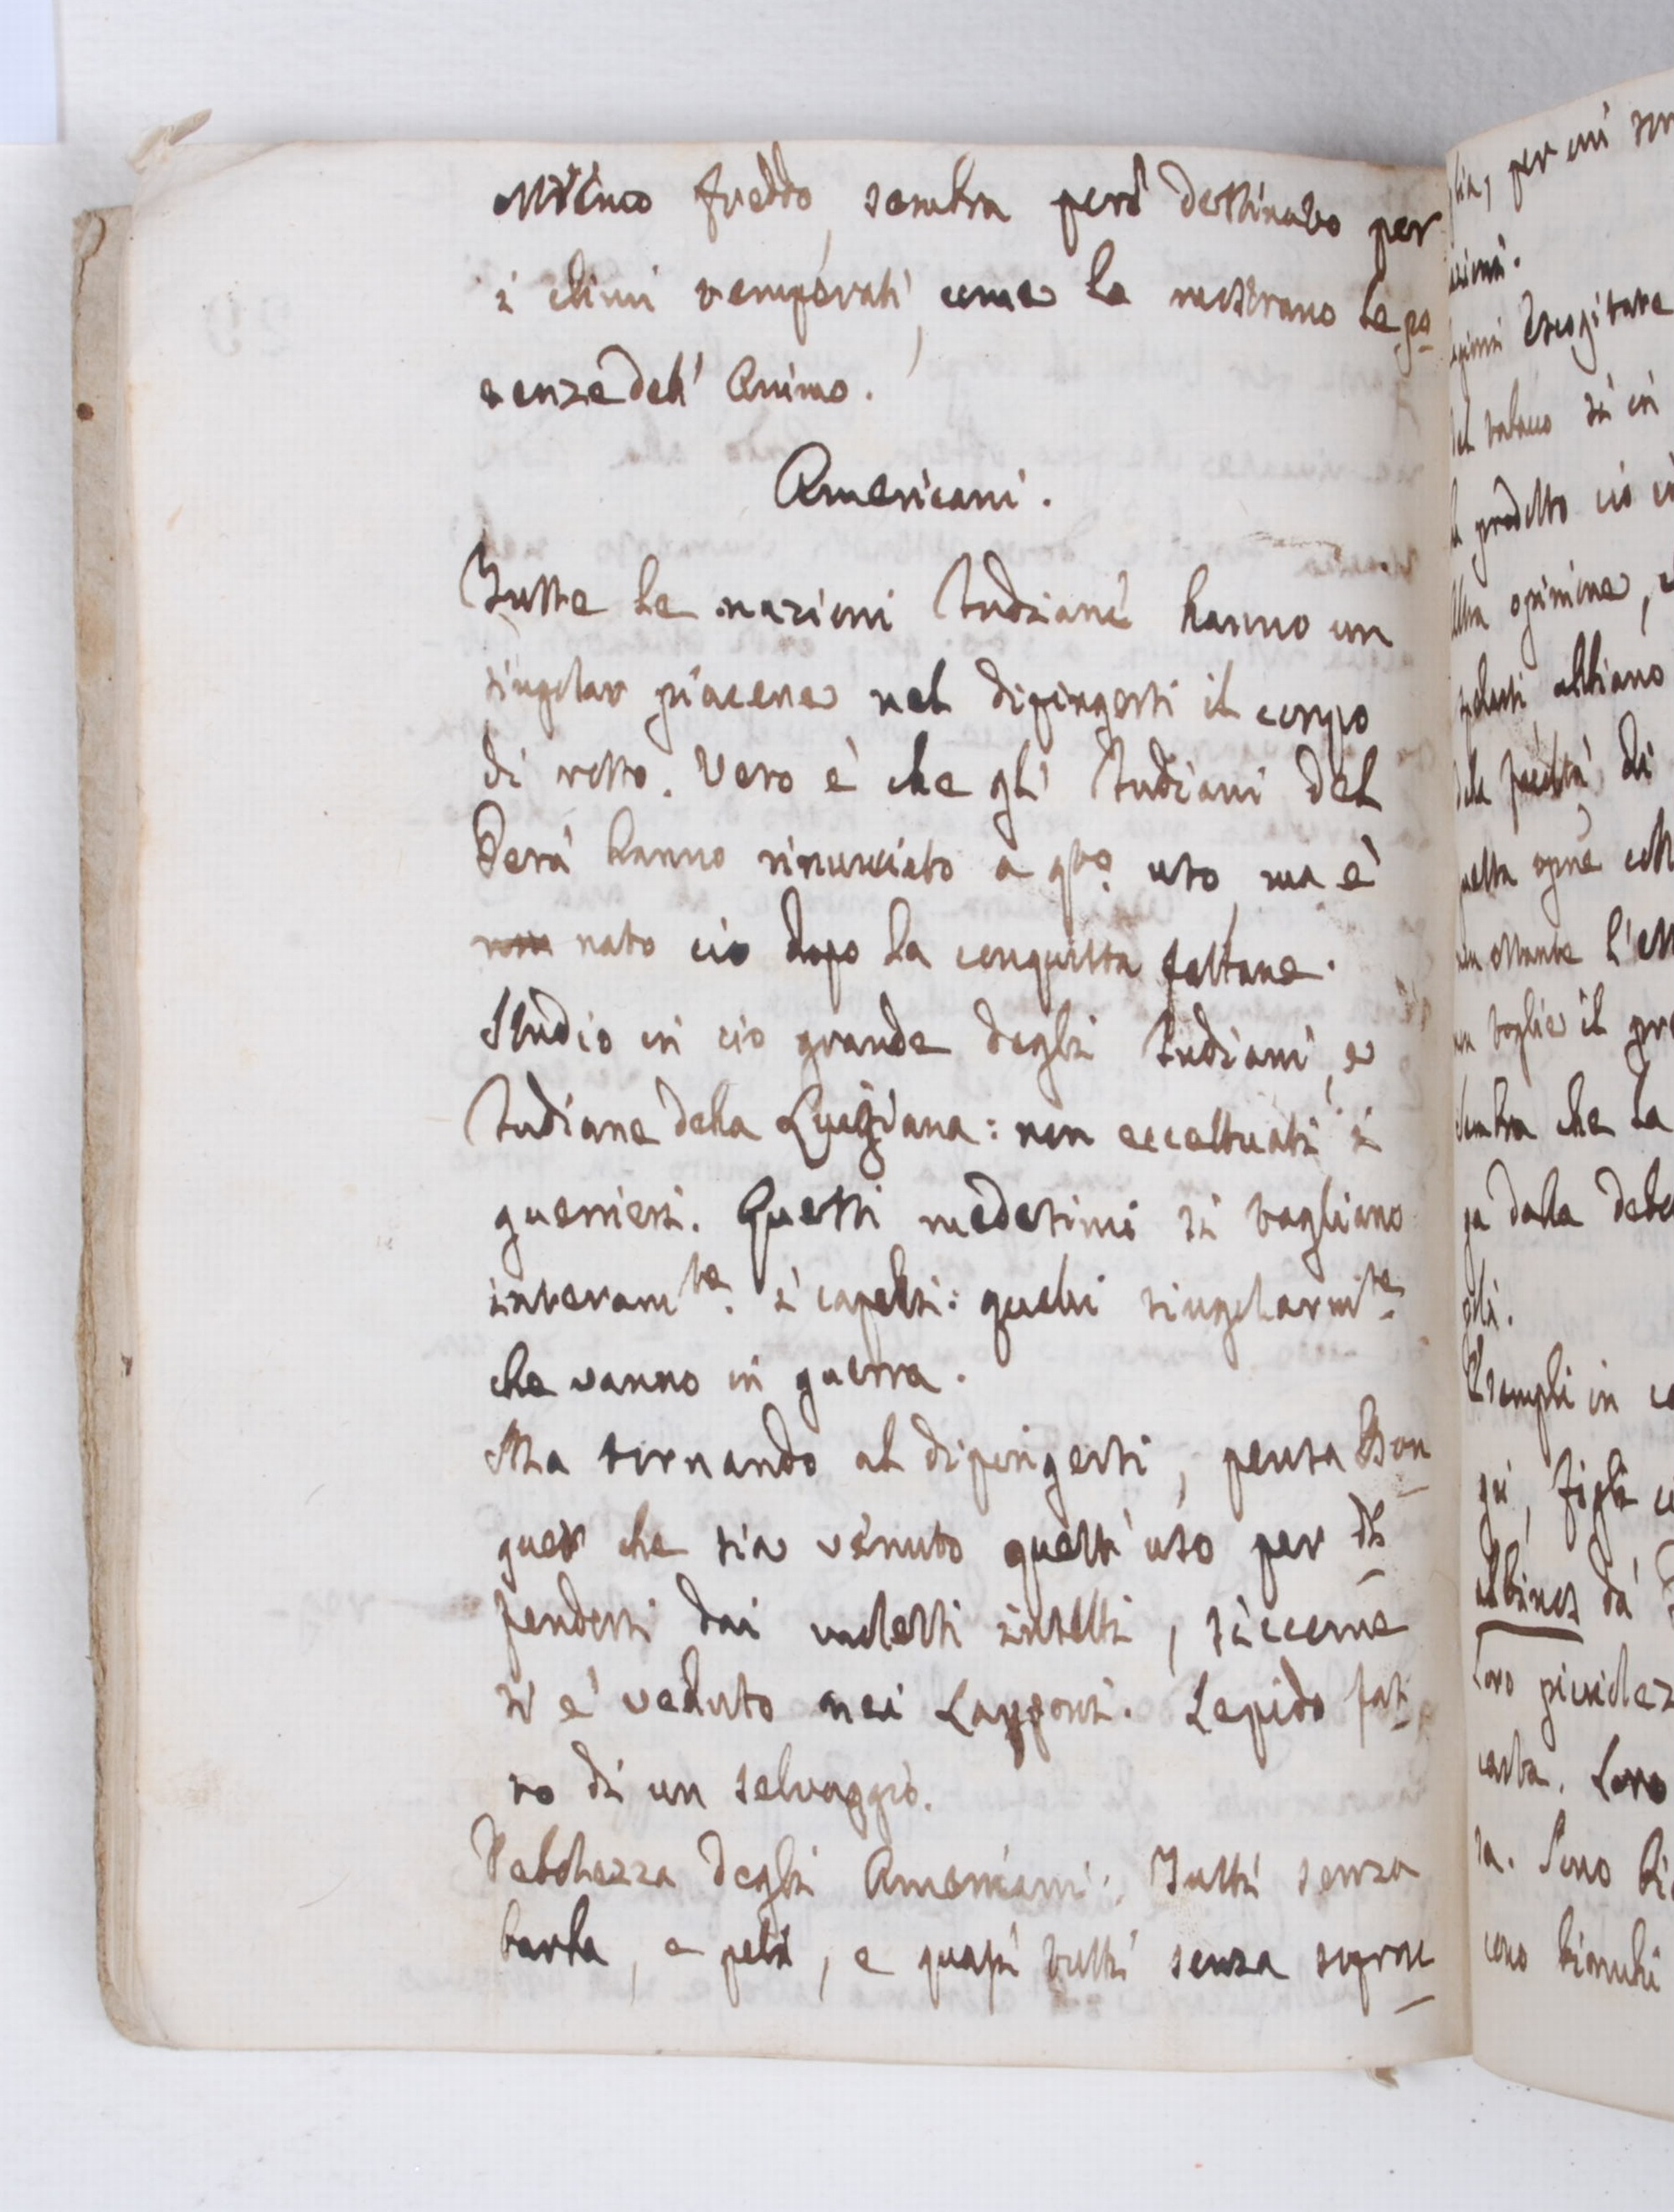 attimo freddo, sembra però destinato per
i climi temperati, come lo mostrano le po-
tenze dell' Animo.
Americani.
Tutte le nazioni Indiane hanno un
singolar piacere nel dipingersi il corpo
di rosso. Vero è che gl' Indiani del
Perù hanno rinunciato a qto uso, ma è
nato ciò dopo la conquista fattane.
Studio in ciò grande degli Indiani, e
Indiane della Luigiana: non eccettuati i
guerrieri. Questi medesimi si tagliano
interamte. i capelli: quelli singolarmte
che vanno in guerra.
Ma tornando al dipingersi, pensa Bou-
guer che sia venuto quest' uso per di-
fendersi dai molesti insetti, siccome
si è veduto nei Lapponi. Lepido fat-
to di un selvaggio.
Debolezza degli Americani. Tutti senza
barba, e peli, e quasi tutti senza sopraci-
per cui son
escogitare
del tabacco si in
predetto ciò
opinione,
abbiano
di
non ostante l'
voglia il
Sembra che la
dalla
Esempli in
figli
Albinos da
Loro picciolez
casta. Loro
Sono
bianchi